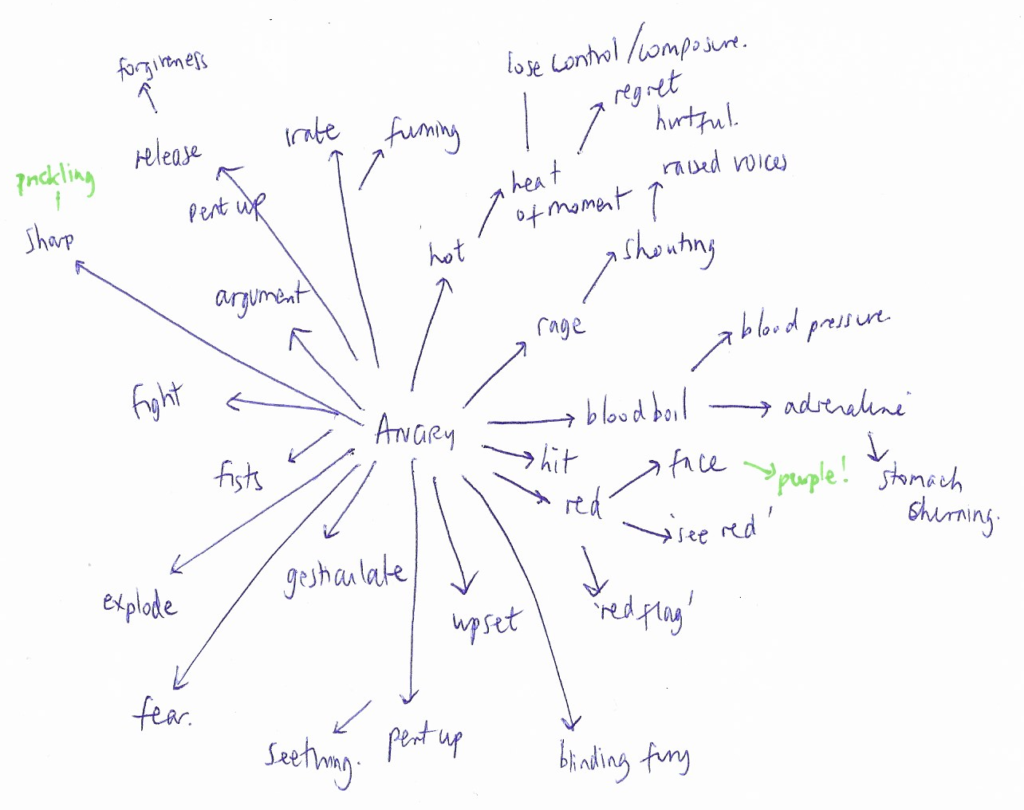 lose control/composure.
forgiveness
regret
hurtful.
irate
fuming
release
raised voices
prickling
heat
of moment
pent up
sharp
hot
shouting
argument
rage
blood pressure.
fight
blood boil
adrenaline
ANGRY
hit
face
purple!
stomach
churning.
fists
red
'see red'
gesticulate
explode
upset
'red flag'
fear.
seething.
pent up
blinding fury